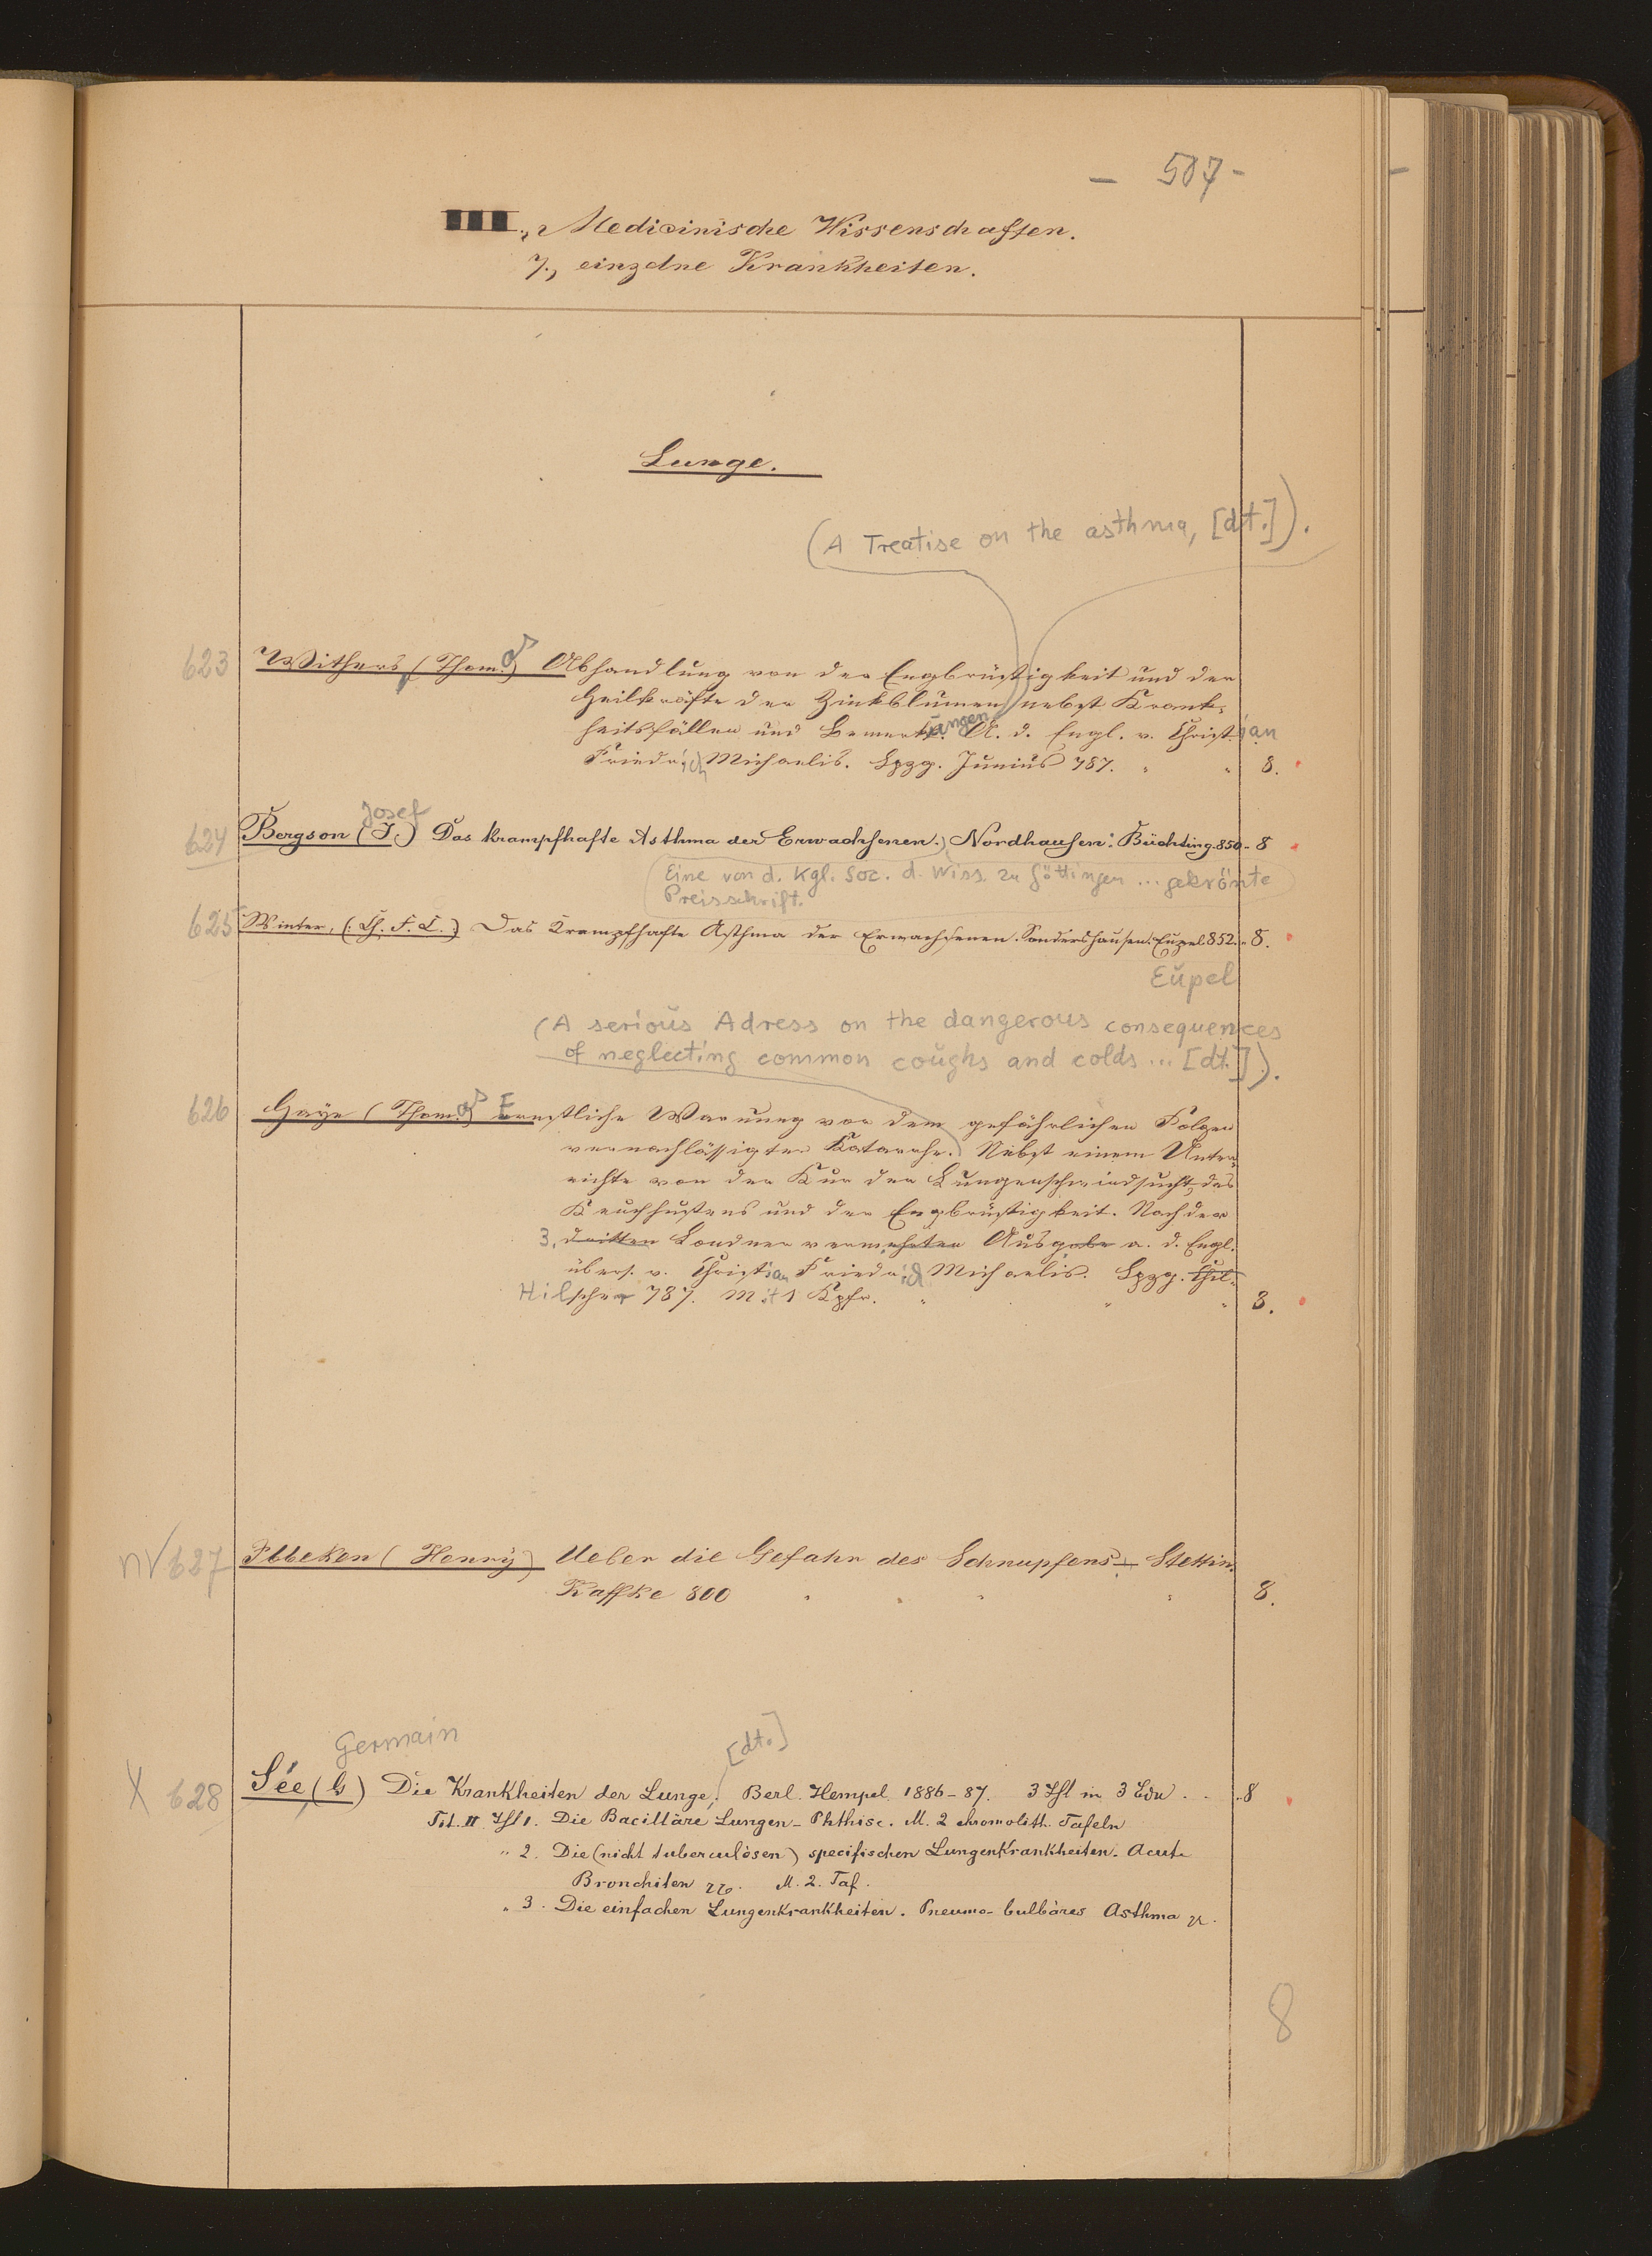 - 507 -
III., Medicinische Wissenschaften.
7., einzelne Krankheiten.
Lunge.
(A Treatise on the asthma, [dt.]).
623 Withers (Thomas) Abhandlung von der Engbrüstigkeit und den
Heilkräfte der Zinkblumen nebst Krank-
heitsfällen und Bemerkungen. A. d. Engl. v. Christian
Friedrich Michaelis. Lpzg. Junius 787. " " 8.
Josef
624 Bergson (J.) Das krampfhafte Asthma der Erwachsenen. Nordhausen: Büchting. 850 - 8
Eine von d. Kgl. Soc. d. Wiss. zu Göttingen ... gekrönte
Preisschrift.
625 Winter, Das Krampfhafte Asthma der Erwachsenen. Sondershausen: Eupel. 852. - 8.
Eupel
(A serious Adress on the dangerous consequences
of neglecting common coughs and colds ... [dt.]).
626 Haye (Thomas) Ernstliche Warnung vor dem gefährlichen Folgen
vernachlässigter Katarrhe. Nebst einem Unter-
richte von der Kur der Lungenschwindsucht, des
Keuchhustens und der Engbrüstigkeit. Nach der
3. dritten Londner vermehrten Ausgabe a. d. Engl.
übers. v. Christian Friedrich Michaelis. Lpzg. Hil-
Hilscher 787. Mit 1 Kpfr. " " " 8.
nv 627 Ibbeken (Henry) Ueber die Gefahr des Schnupfens. Stettin.
Kaffke 800 8.
Germain [dt.]
X 628 Sée (G) Die Krankheiten der Lunge. Berl. Hempel 1886-87. 3 Thl in 3 Bdn . . . 8
Tit. II Thl 1. Die Bacilläre Lungen-Phthise. M. 2 chromolith. Tafeln
" 2. Die (nicht tuberculösen) specifischen Lungenkrankheiten. Acute
Bronchiten etc. M. 2. Taf.
" 3. Die einfachen Lungenkrankheiten. Pneumo-bulbäres Asthma etc.
8